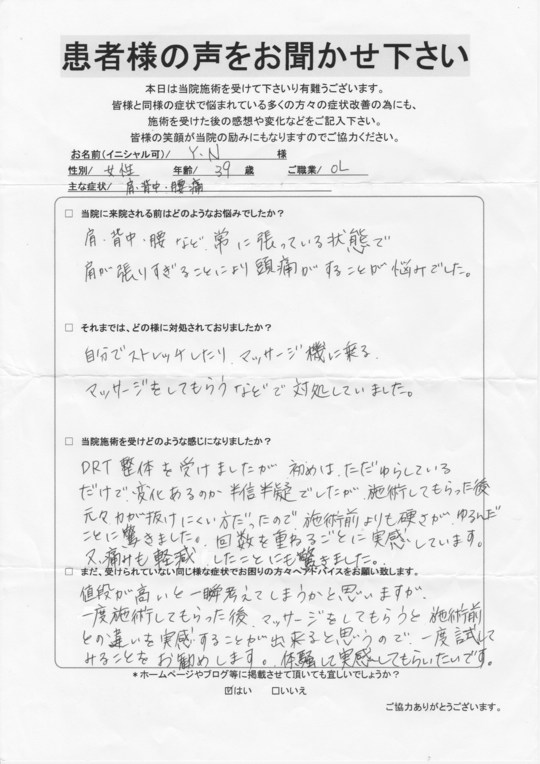 患者様の声をお聞かせ下さい
本日は当院施術を受けて下さいり有難うございます。
皆様と同様の症状で悩まれている多くの方々の症状改善の為にも、
施術を受けた後の感想や変化などをご記入下さい。
皆様の笑顔が当院の励みにもなりますのでご協力ください。
お名前(イニシャル可)/ Y.N 様
性別/ 女性 年齢/ 39 歳 ご職業/ OL
主な症状/ 肩・背中・腰痛
□ 当院に来院される前はどのようなお悩みでしたか?
肩・背中・腰など、常に張っている状態で
肩が張りすぎることにより頭痛がすることが悩みでした。
□ それまでは、どの様に対処されておりましたか?
自分でストレッチしたり、マッサージ機に乗る、
マッサージをしてもらうなどで対処していました。
□ 当院施術を受けどのような感じになりましたか?
DRT整体を受けましたが 初めは、ただゆらしている
だけで、変化あるのか半信半疑でしたが、施術してもらった後
元々力が抜けにくい方だったので、施術前よりも硬さが、ゆるんだ
ことに驚きました。回数を重ねるごとに実感しています。
又、痛みも軽減したことにも驚きました。
□ まだ、受けられていない同じ様な症状でお困りの方々へアドバイスをお願い致します。
値段が高いと一瞬考えてしまうかと思いますが、
一度施術してもらった後、マッサージをしてもらうと施術前
との違いを実感することが出来ると思うので、一度試して
みることをお勧めします。体験して実感してもらいたいです。
*ホームページやブログ等に掲載させて頂いても宜しいでしょうか?
☑はい □いいえ
ご協力ありがとうございます。